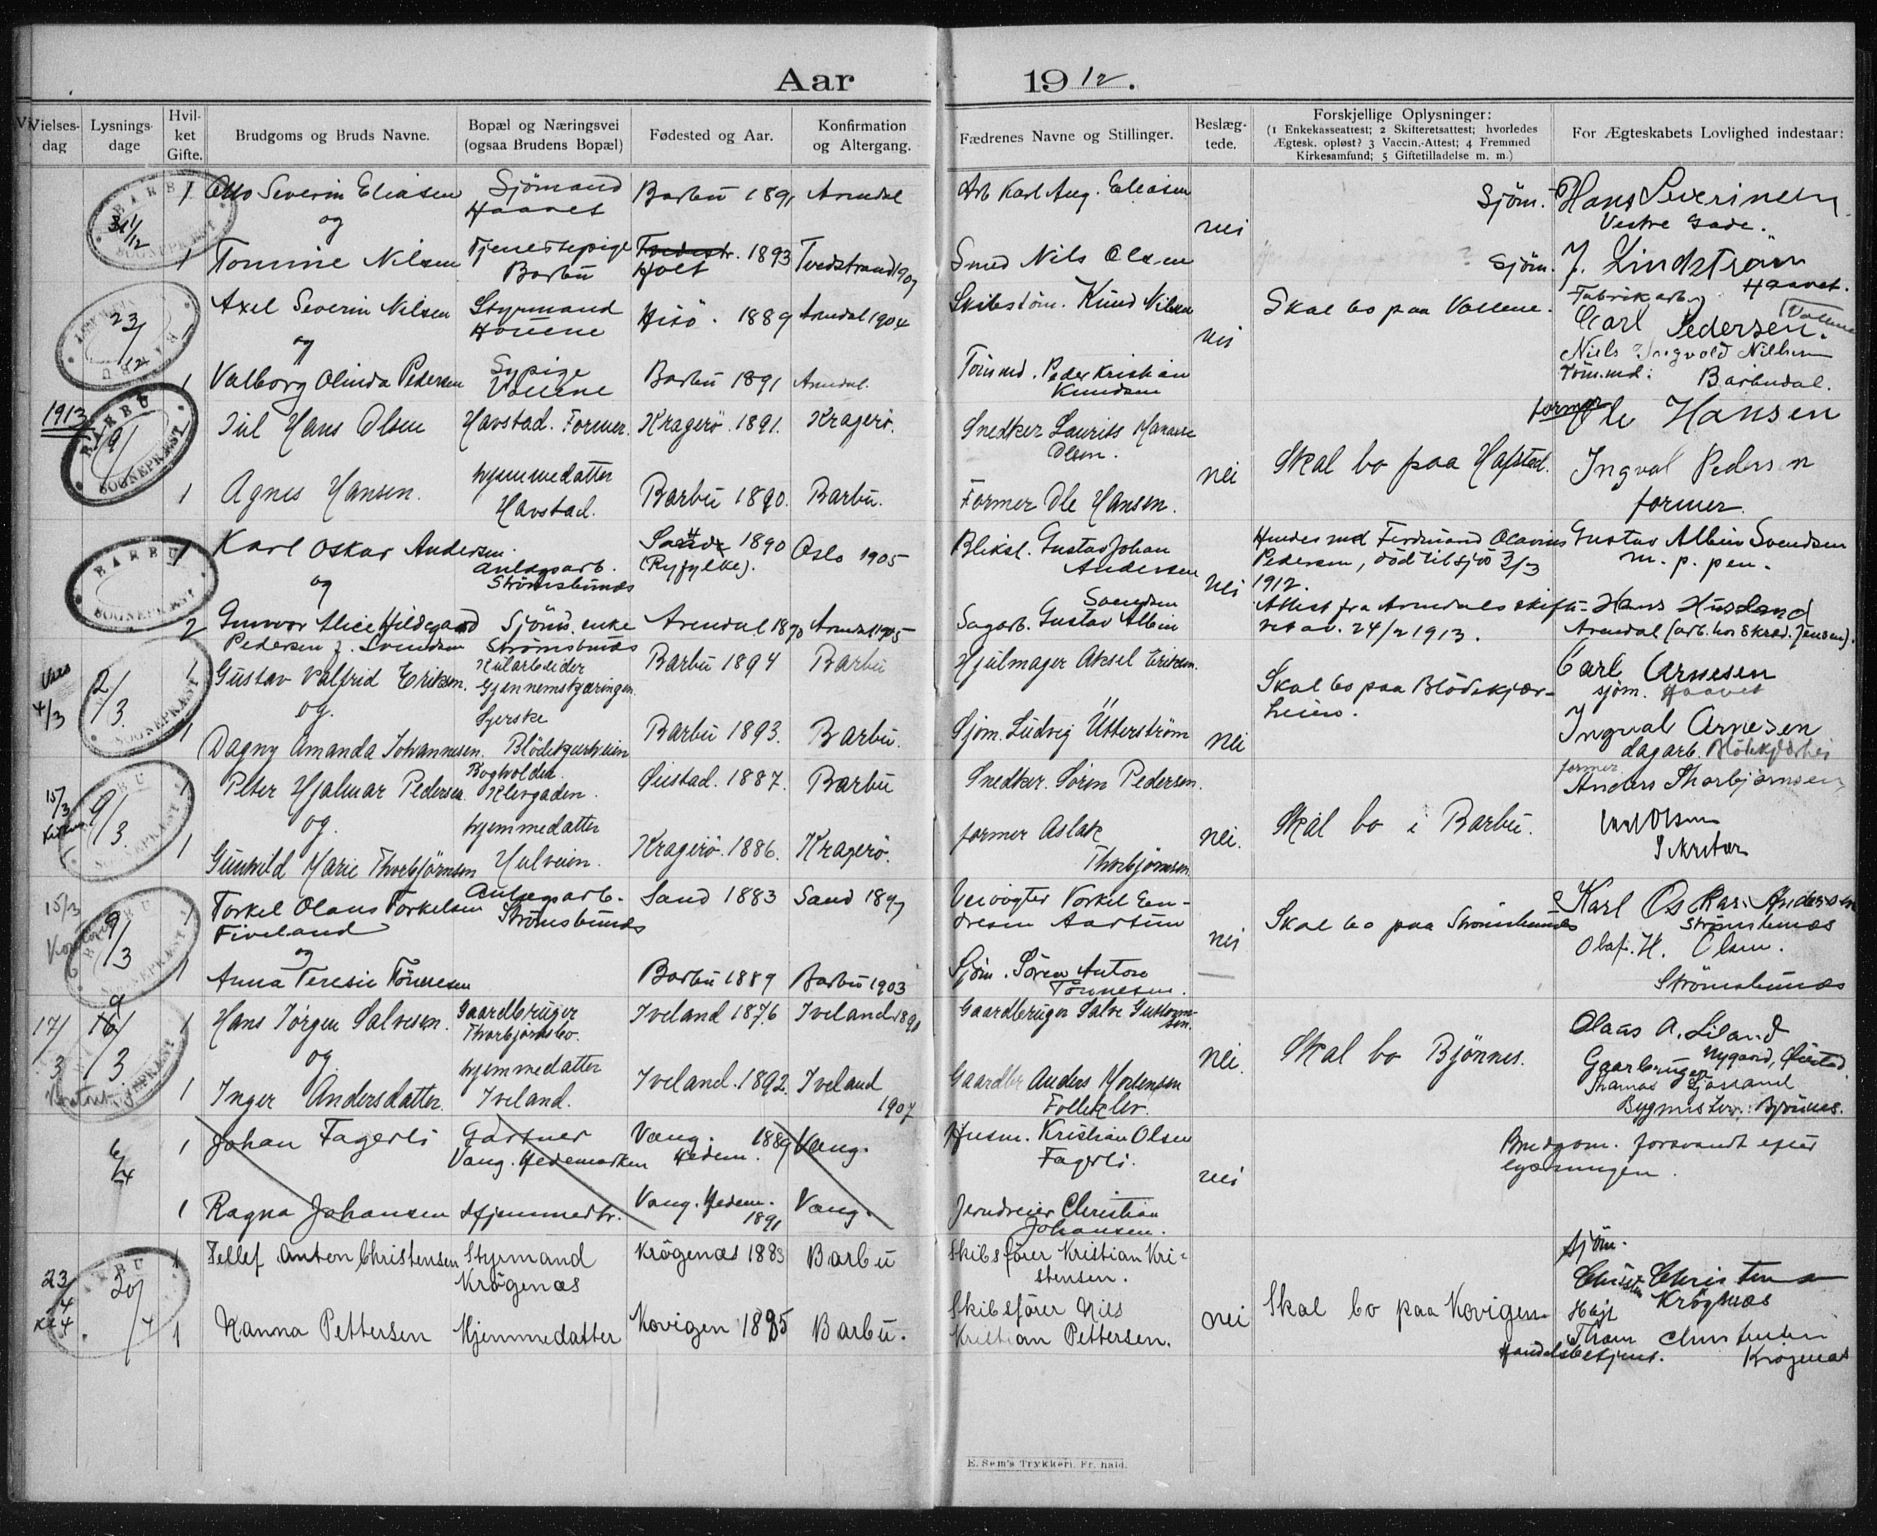 Aar 1912.
Vielses-dag
Lysnings-dage
Hvil-ket Gifte.
Brudgoms og Bruds Navne.
Bopæl og Næringsvei (ogsaa Brudens Bopæl)
Fødested og Aar.
Konfirmation og Altergang.
Fædrenes Navne og Stillinger.
Beslæg-tede.
Forskjellige Oplysninger:
(1 Enkekasseattest; 2 Skifteretsattest; hvorledes
Ægtesk. opløst? 3 Vaccin.-Attest; 4 Fremmed
Kirkesamfund; 5 Giftetilladelse m. m.)
For Ægteskabets Lovlighed indestaar:
BARBU SOGNEPRÆST
1 Otto Severin Eliasen Sjömand Haavet Barbu 1891 Arendal Arb Karl Aug. Eliasen Sjöm. Hans Severinsen
og nei Vestre Gade.
1 Tomine Nilsen Tjenestepige Barbu Holt 1893 Tvedstrand 1907 Smed Nils Olsen Sjöm. J. Lindstrøm Haavet.
23/12 Axel Severin Nilsen Styrmand Hisö. 1889 Arendal 1904 Skibstöm. Knud Nilsen Skal bo paa Vollene. Fabrikarb. Carl Pedersen.
og nei Niels Ingvold Nilsen
1 Valborg Olinda Pedersen Sypige Vollene Barbu 1891 Arendal. Tömmd. Peder Kristian Knudsen Tömmd: Barbudal.
1913
BARBU SOGNEPRÆST
9/1 Jul Hans Olsen Havstad. Former. Kragerö. 1891. Kragerö. Snedker Laurits Olsen. former Ole Hansen
nei Skal bo paa Hafstad. Ingval Pedersen
1 Agnes Hansen. hjemmedatter Havstad. Barbu 1890. Barbu. Former Ole Hansen. former.
BARBU SOGNEPRÆST
1 Karl Oskar Andersen. anlægsarb. Strömsbunæs 1890 (Ryfylke). Oslo 1905 Bliksl. Gustav Johan Andersen nei
Hendes md Ferdinand Olavius Pedersen, död til sjös 3/3 1912.
Attest fra Arendals skifte-ret av. 24/2 1913.
Gustav Albin Svendsen m. p. pen.
og
2 Gunvor Alice Hildegard Pedersen f. Svendsen Sjöm. enke Strömsbunæs Arendal 1890 Arendal 1905 Sagarb. Gustav Albin Svendsen Hans Husland
Arendal (arb. hos Skræd. Jensen).
4/3 2/3. 1 Gustav Valfrid Eriksen. Gjennemskjæringen Barbu 1894 Barbu Hjulmager Aksel Eriksen. Carl Arnesen
og. Skal bo paa Blödekjær-heien. sjöm. Haavet
1 Dagny Amanda Johannesen. Syerske Blödekjærheien Barbu 1893. Barbu. Sjöm. Ludvig Ütterström nei Ingval Arnesen
dagarb. Blödekjærhei
15/3 9/3 Peter Hjalmar Pedersen. Bogholder. Öiestad. 1887. Barbu Snedker. Sören Pedersen. former Anders Thorbjørnsen
og. nei. Skal bo i Barbu. Carl Olsen
1 Gunvild Marie Thorbjörnsen hjemmedatter Kragerö. 1886. Kragerö. former Aslak Thorbjörnsen Sekretær
15/3 9/3 1 Torkel Olaus Torkelsen Fiveland Anlægsarb. Strömsbunæs Sand 1883 Sand 1897 Veivogter Torkel Endresen Aartun Karl Oskar Andersen
og nei Skal bo paa Strömsbunæs Strömsbunæs
1 Anna Teresie Tönnesen Barbu 1889 Barbu 1903 Sjöm. Sören Anton Tönnesen. Olaf. H. Olsen.
Strömsbunæs
17/3 9/3 1 Hans Jörgen Salvesen. Gaardbruger Thorbjörnsbo. Iveland 1876 Iveland 1891 Gaardbruger Salve Olaus A. Liland
og nei. Skal bo Bjönnes. Gaarbruger Nygaard, Öiestad
1 Inger Andersdatter. hjemmedatter Iveland. Iveland. 1892. Iveland 1907 Gaardbr Anders Mortensen
Bygmester: Bjönnes.
6/4 1 Johan Fagerli Gartner Vang. Hedemarken Vang. Hedem. 1889 Vang. Husm. Kristian Olsen Fagerli. nei Brudgom. forsvandt efter lysningen.
1 Ragna Johansen Hjemmedtr. Vang. Hedem. 1891 Vang. Jerndreier Christian Johansen.
23/4 Kl 4 20/4 1 Tellef Anton Christensen Styrmand Krögenæs Krögenæs 1883 Barbu Skibsförer Kristian Kri-stensen. sjöm.
Krögnæs
1 Nanna Pettersen Hjemmedatter Kovigen 1885 Barbu. Skibsförer Nils Kristian Pettersen. nei Skal bo paa Kovigen
Handelsbetjent. Krögenæs
E. Sem's Trykkeri. Fr. hald.